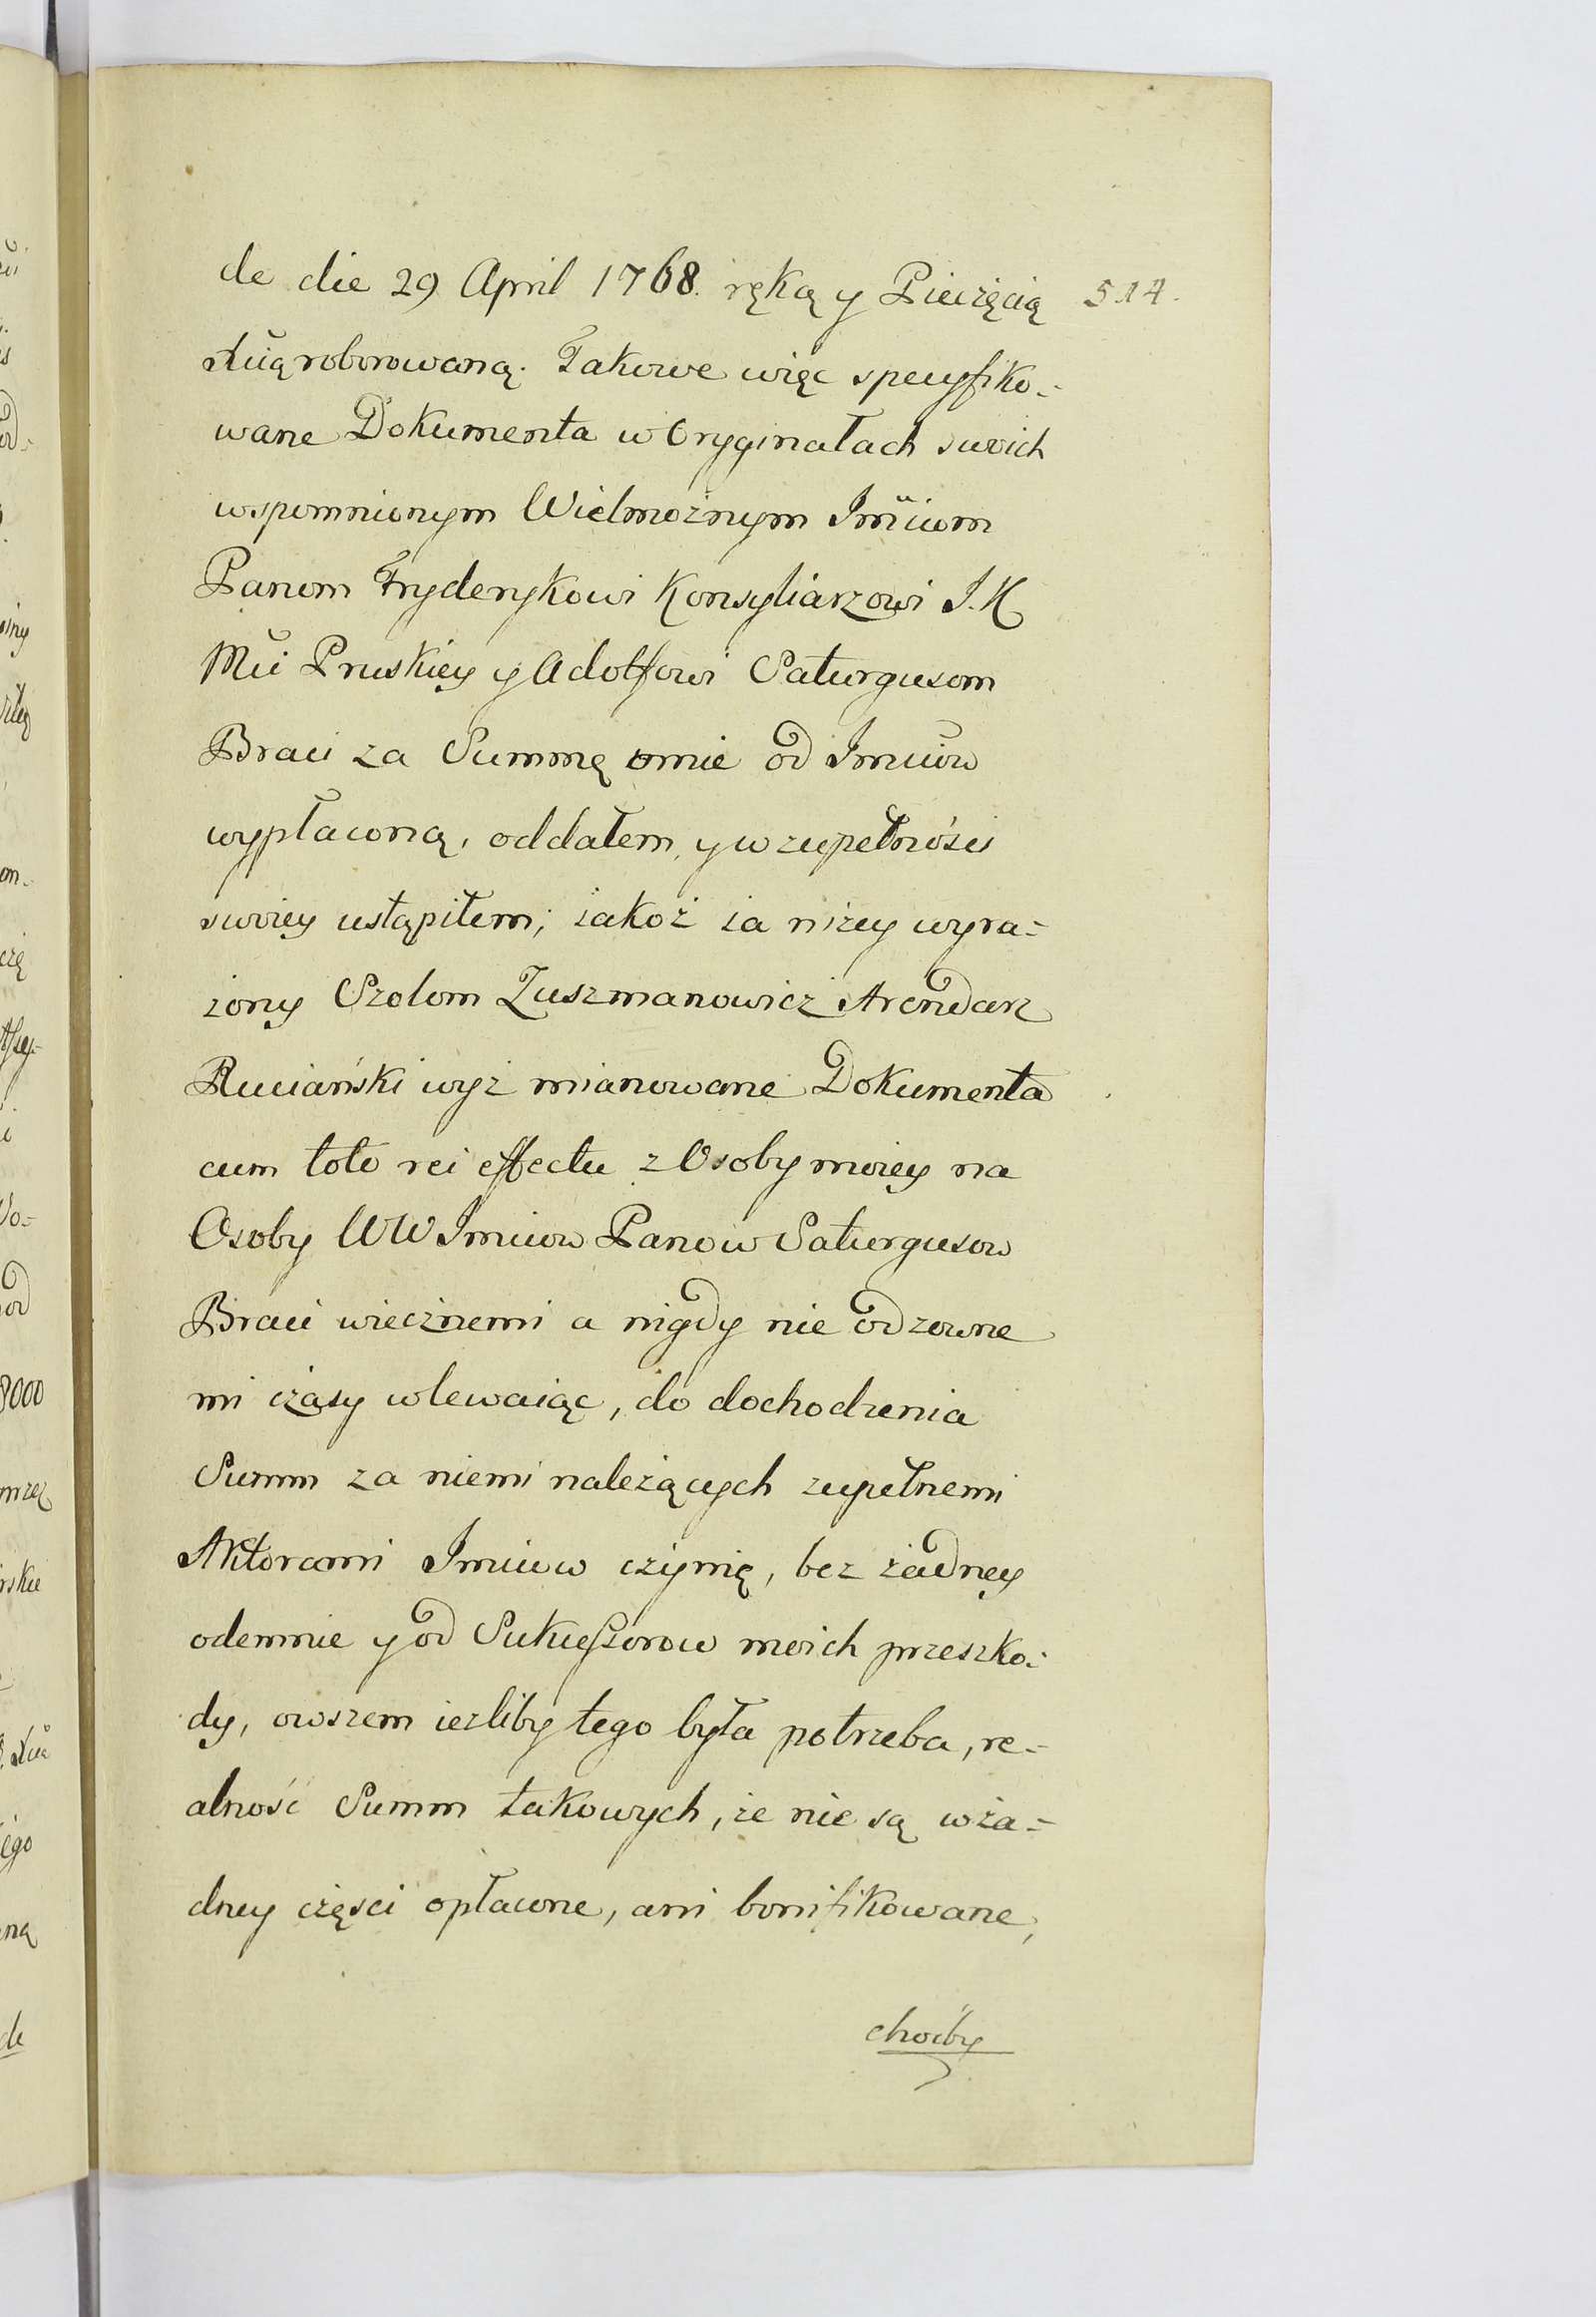 de die 29 April 1768. ręką y Pieczęcią 514.
roborowaną. Takowe więc specyfiko-
wane Dokumenta w Oryginałach swoich
wspomnionym Wielmożnym Imciom
Panom Fryderykowi Konsyliarzowi I. K
Mci Pruskiey y Adolfowi Saturgusom
Braci za Summę mnie od Imciow
wypłaconą, oddałem, y w zupełności
swoiey ustąpiłem; iakoż ia niżey wyra-
żony Szolom Zuszmanowicz Arendarz
Ruciański wyż mianowane Dokumenta
cum toto rei effectu z Osoby moiey na
Osoby WW Imciow Panow Saturgusow
Braci wiecznemi a nigdy nie odzowne
mi czasy wlewaiąc, do dochodzenia
Summ za niemi należących zupełnemi
Aktorami Imciow czynię, bez żadney
odemnie y od Sukceszorow moich przeszko-
dy, owszem ieżliby tego była potrzeba, re-
alność Summ takowych, że nie są w ża-
dney części opłacone, ani bonifikowane,
choćby